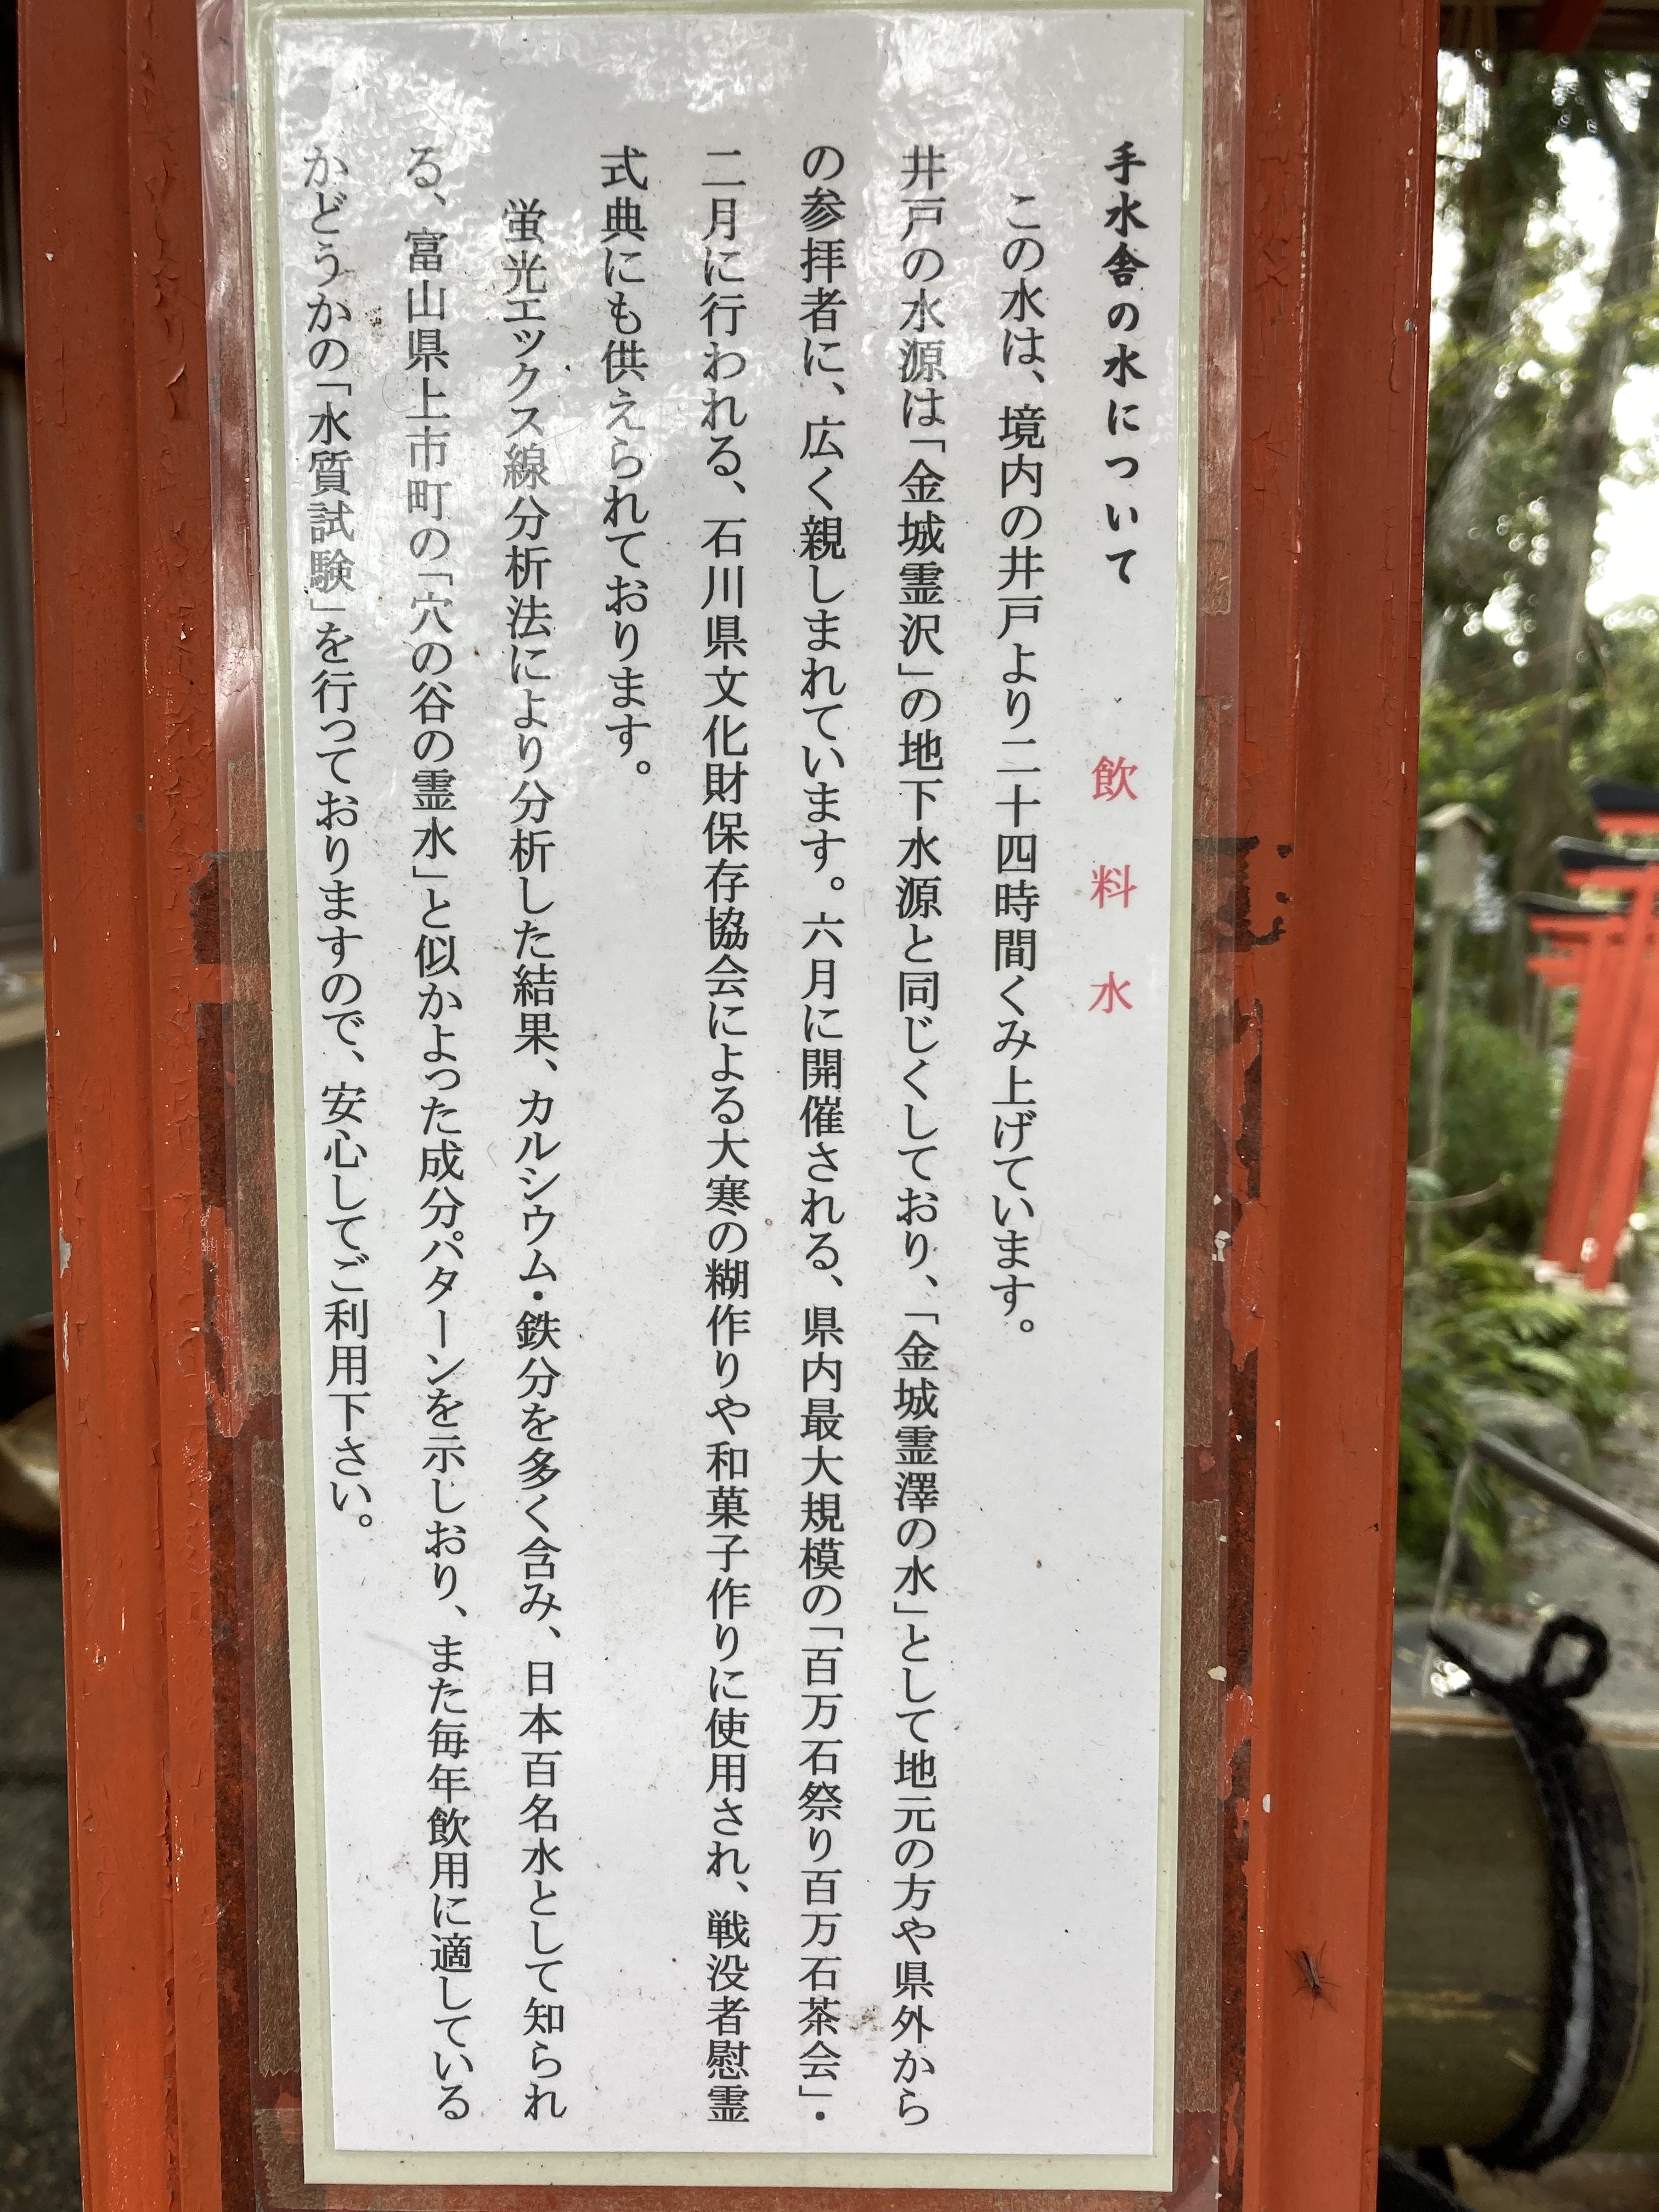 手水舎の水について　飲料水
この水は、境内の井戸より二十四時間くみ上げています。
井戸の水源は「金城霊沢」の地下水源と同じくしており、「金城霊澤の水」として地元の方や県外から
の参拝者に、広く親しまれています。六月に開催される、県内最大規模の「百万石祭り百万石茶会」・
二月に行われる、石川県文化財保存協会による大寒の糊作りや和菓子作りに使用され、戦没者慰霊
式典にも供えられております。
蛍光エックス線分析法により分析した結果、カルシウム・鉄分を多く含み、日本百名水として知られ
る、富山県上市町の「穴の谷の霊水」と似かよった成分パターンを示しおり、また毎年飲用に適している
かどうかの「水質試験」を行っておりますので、安心してご利用下さい。